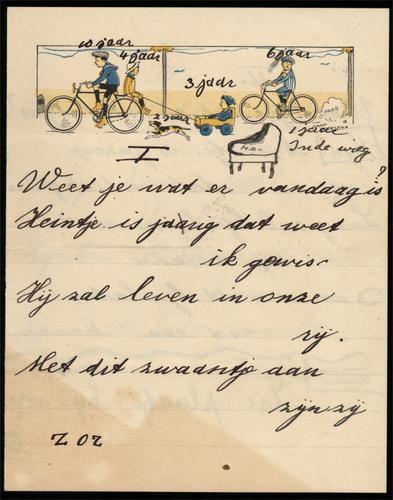 10 jaar
4 jaar
6 jaar
3 jaar
2 jaar
1 jaar
In de wieg
I
Weet je wat er vandaag is?
Heintje is jaarig dat weet
ik gewis
Hij zal leven in onze
rij.
Met dit zwaardtje aan
zijn zij
Z O Z